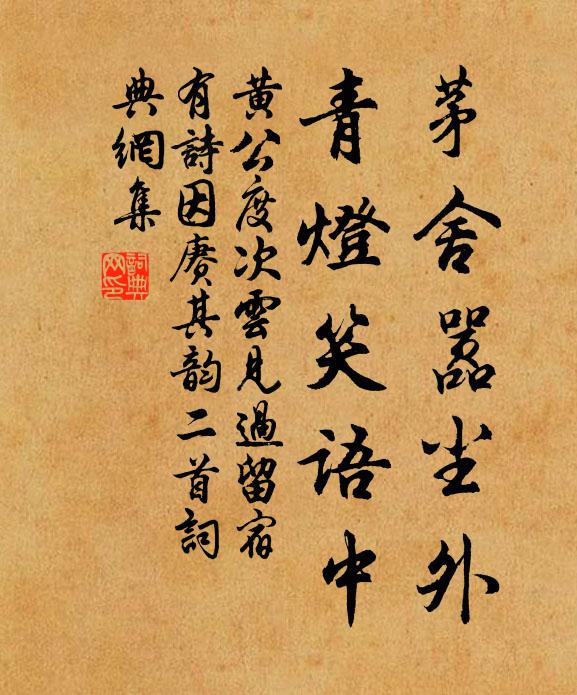 茅舍嚣尘外
青燈笑語中
黃公度次雲見過留宿
有詩因賡其韵二首詞
典網集
詞典網印